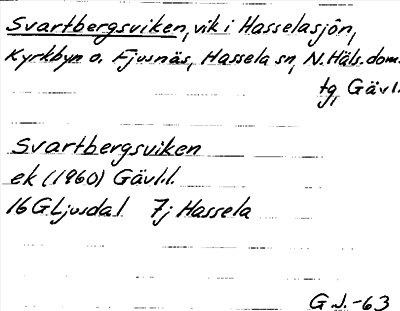 Svartbergsviken, vik i Hasselasjön,
Kyrkbyn o. Fjusnäs, Hassela sn, N. Häls. dom.
tg, Gävl.
Svartbergsviken
ek (1960) Gävl.l.
16G Ljusdal 7j Hassela
G.J.-63